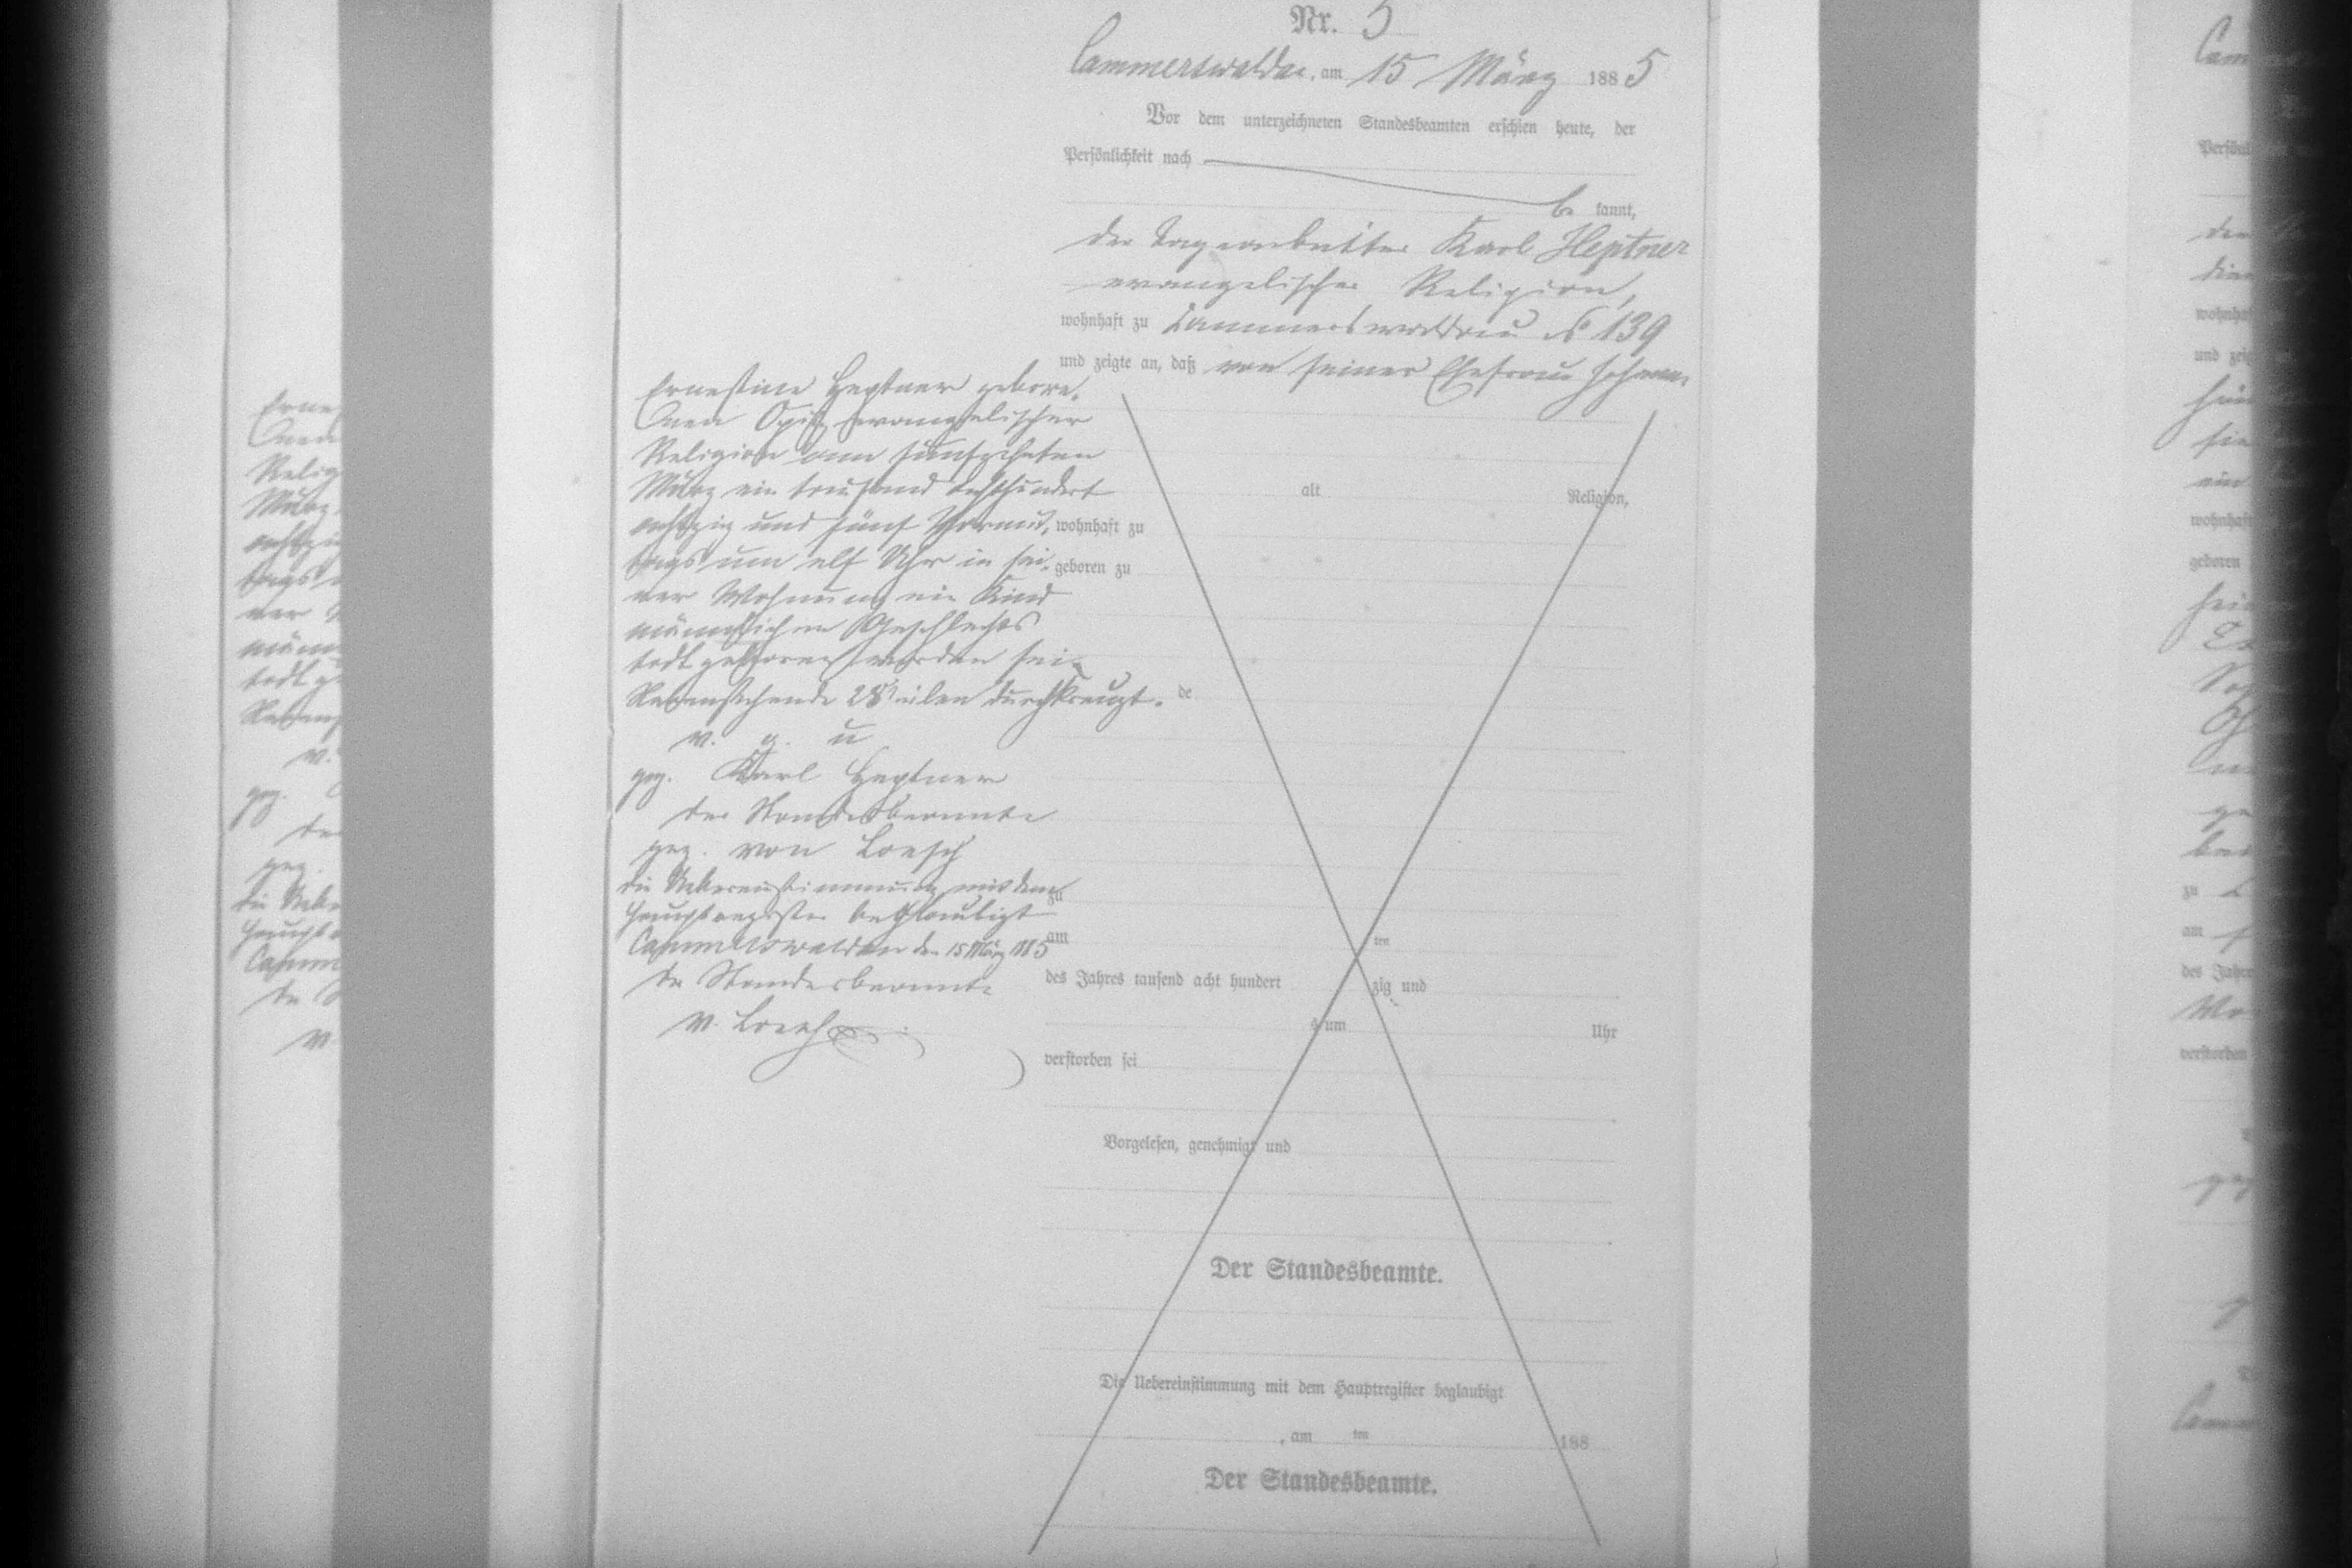 Nr. 5
Cammerswaldau, am 15 März 1885
Vor dem unterzeichneten Standesbeamten erschien heute, der
Persönlichkeit nach
be kannt,
der Tagearbeiter Karl Heptner
evangelischer Religion,
wohnhaft zu Cammerswaldau № 139
und zeigte an, daß von seiner Ehefrau Johanne
Ernestine Heptner gebore-
nen Opitz evangelischer
Religion am fünfzehnten
März ein tausend achthundert
achtzig und fünf Vormit-
tags um elf Uhr in sei-
ner Wohnung ein Kind
männlichen Geschlechts
todt geboren worden sei.
Nebenstehende 28 Zeilen durchkreuzt.
v. g. u
gez. Karl Heptner
der Standesbeamte
gez. von Loesch
die Uebereinstimmung mit dem
Hauptregister beglaubigt
Cammerswaldau den 15 März 1885
der Standesbeamte
v. Loesch
alt Religion,
wohnhaft zu
geboren zu
de
zu
am ten
des Jahres tausend acht hundert zig und
s um Uhr
verstorben sei
Vorgelesen, genehmigt und
Der Standesbeamte.
Die Uebereinstimmung mit dem Hauptregister beglaubigt
, am ten 188
Der Standesbeamte.